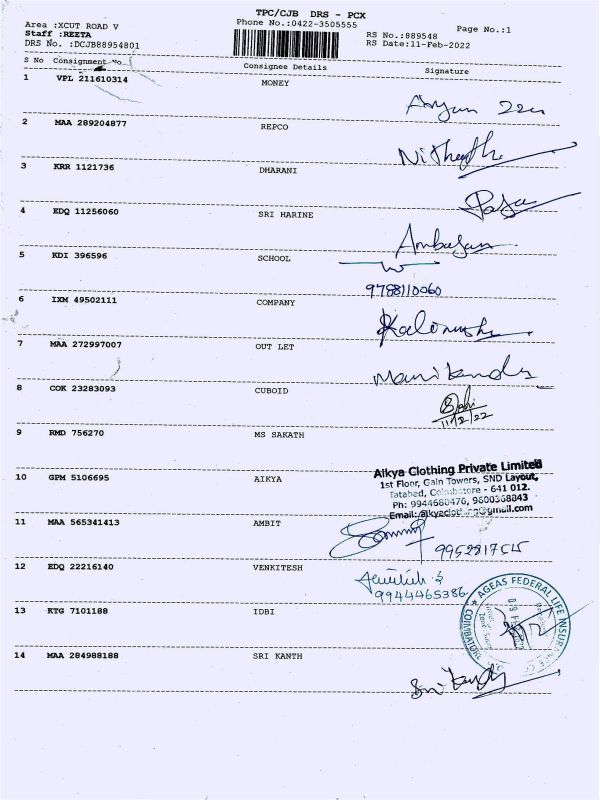 TPC/CJB DRS - PCX
Area :XCUT ROAD V
Phone No.:0422-3505555
Page No.:1
Staff :REETA
RS No.:889548
DRS No. :DCJB88954801
RS Date:11-Feb-2022
S No Consignment No. Consignee Details Signature
1 VPL 211610314 MONEY
2 MAA 289204877 REPCO
3 KRR 1121736 DHARANI
4 EDQ 11256060 SRI HARINE
5 KDI 396596 SCHOOL
9788110060
6 IXM 49502111 COMPANY
7 MAA 272997007 OUT LET
8 COK 23283093 CUBOID
11/2/22
9 RMD 756270 MS SAKATH
10 GPM 5106695 AIKYA
Aikya Clothing Private Limited
1st Floor, Gain Towers, SND Layout,
Tatabad, Coimbatore - 641 012.
Ph: 9944680476, 9600368843
11 MAA 565341413 AMBIT
12 EDQ 22216140 VENKITESH
9944465386
13 KTG 7101188 IDBI
AGEAS FEDERAL LIFE INSURANCE
COIMBATORE
14 MAA 284988188 SRI KANTH